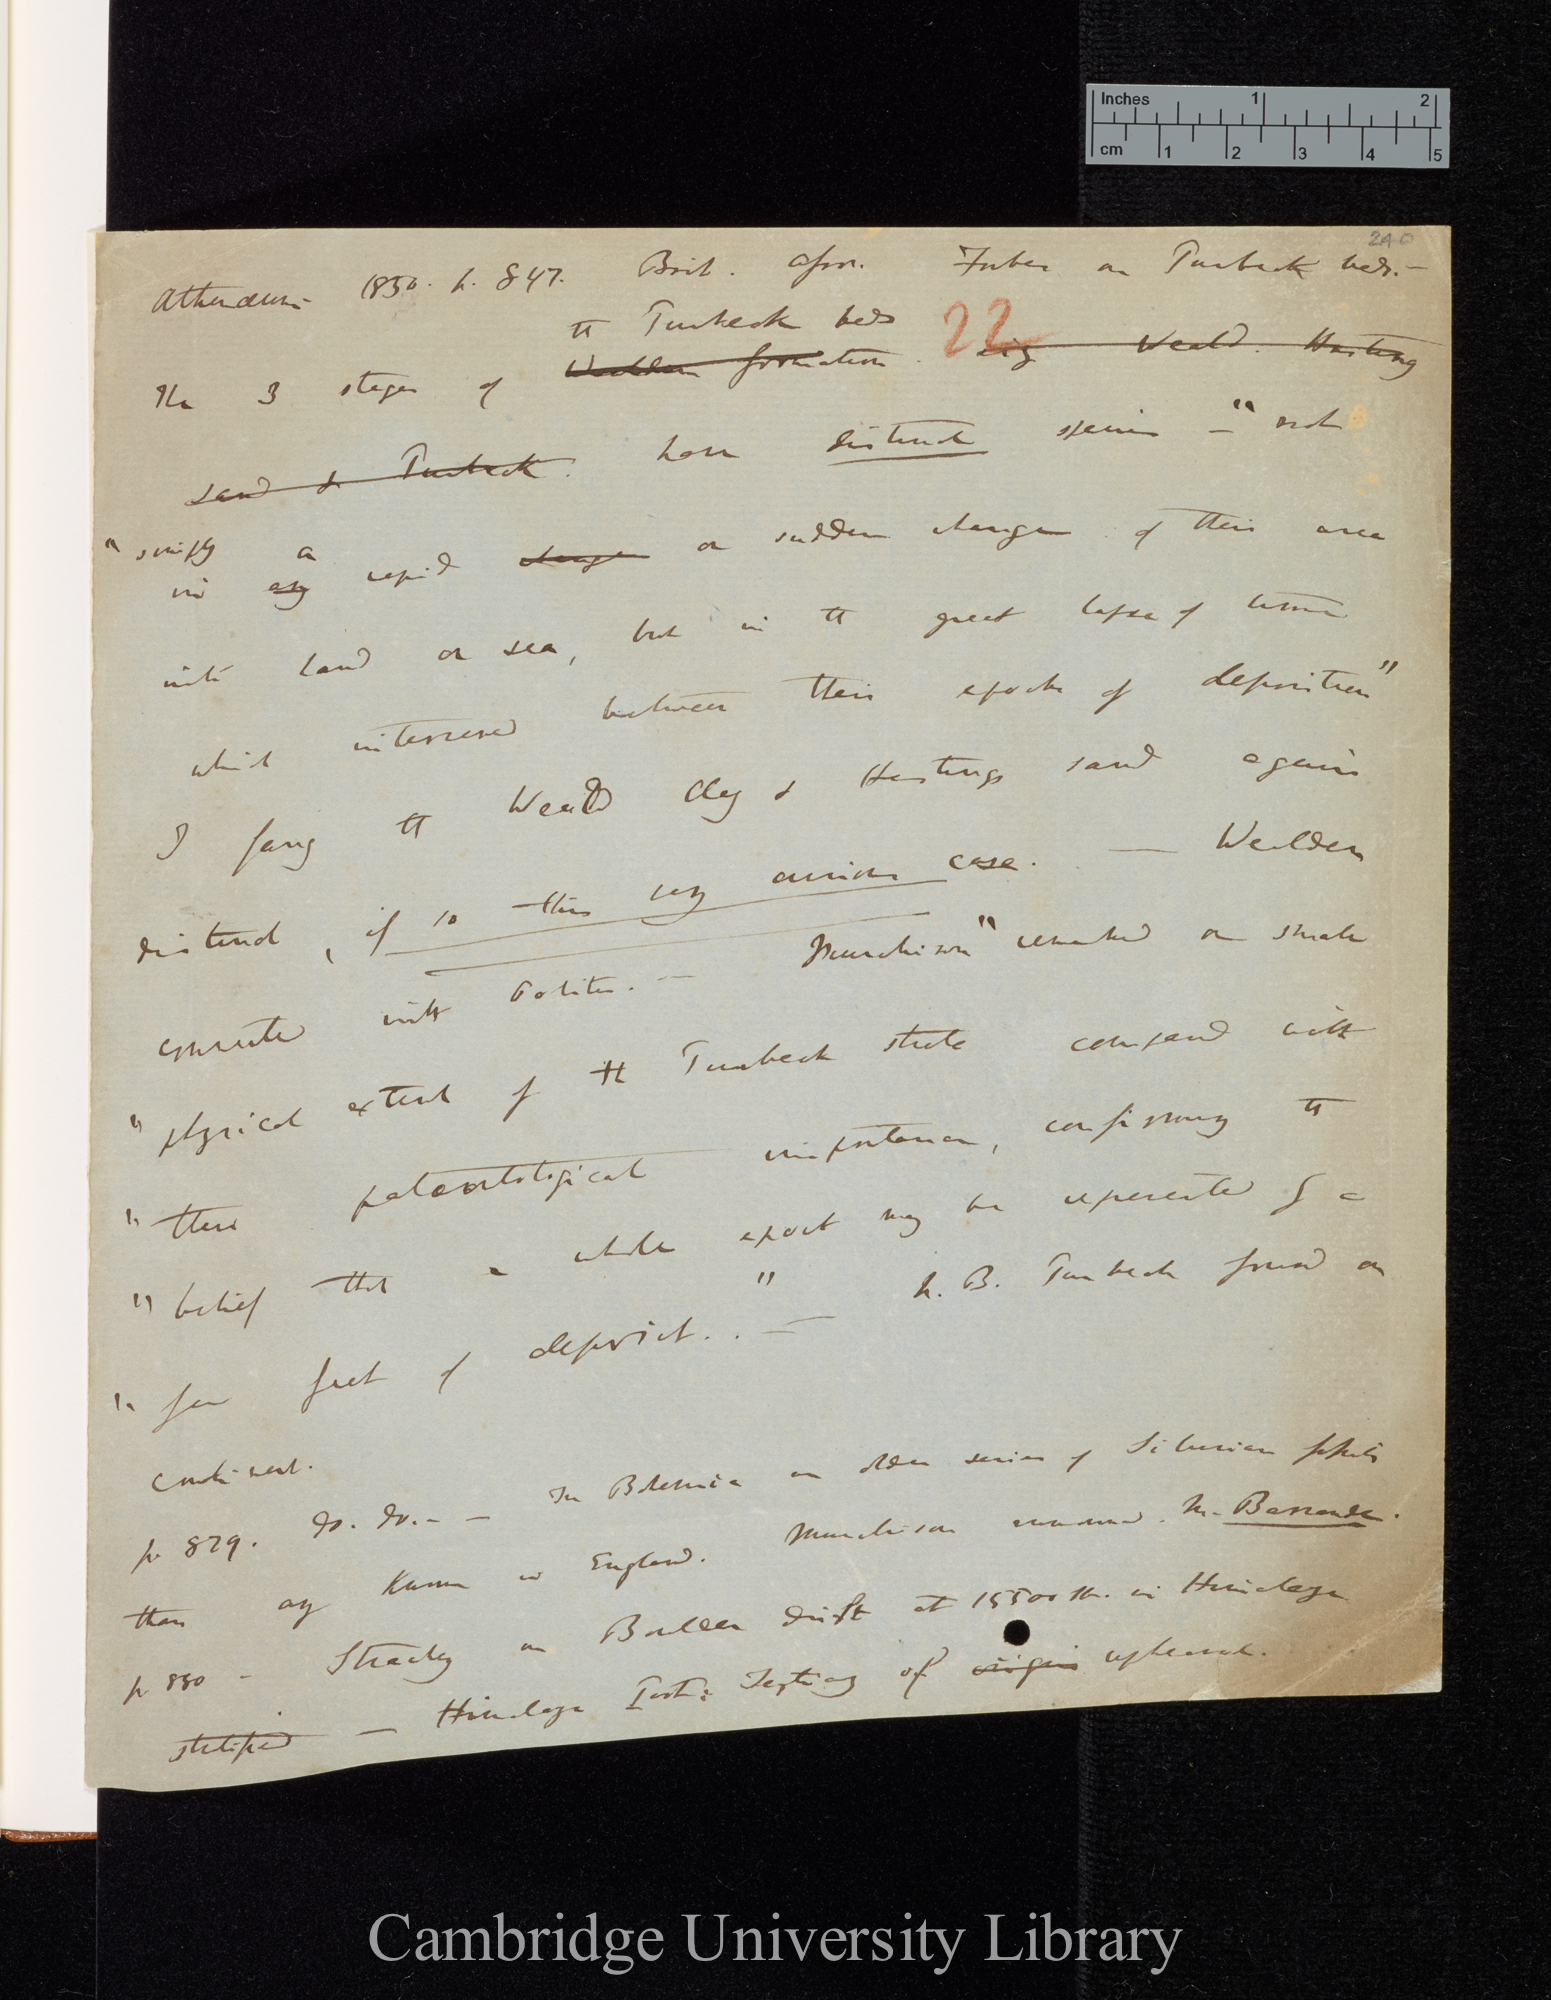 Inches 1 2
cm 1 2 3 4 5
240
Athenæum 1850. p. 847. Brit. Assoc. Forbes on Purbeck beds. —
tt Purbeck beds
22
The 3 stages of Wealden formation. viz Weald. Hastings
sand & Purbeck. have distinct species — "not
"simply a
in any rapid change or sudden change of their area
into land or sea, but in tt great lapse of time
which intervened between their epochs of deposition"
I fancy tt Weald Clay & Hastings sand again
distinct, if so this very curious case. — Wealden
connected with Oolites. — Murchison "remarked on small
"physical extent of tt Purbeck strata compared with
"their paleontological importance, confirming tt
"belief that a whole epoch may be represented by a
"few feet of deposit. . " — N. B. Purbeck found on
Continent.
p 829. Do. Do. — — In Bohemia an older series of Silurian fossils
than any known in England. Murchison announced. M. Barrande.
p 830 — Strachey on Boulder drift at 15500 ft. in Himalaya
stratified — Himalaya Post: Tertiary of origin upheaval.
Cambridge University Library